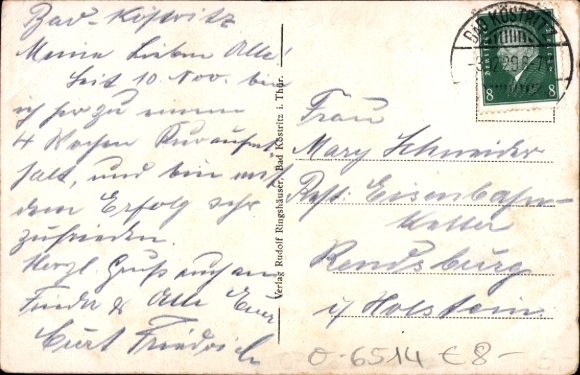 Bad-Köstritz
Meine Lieben Alle!
Seit 10. Nov. bin
ich hier zu einem
4 Wochen Kuraufent
halt, und bin mit
dem Erfolg sehr
zufrieden.
Herzl. Gruß auch an
Frieda & Alle Euer
Curt Friedrich
Verlag Rudolf Ringshäuser, Bad Köstritz i. Thür.
BAD KÖSTRITZ
8 8
Frau
Mary Schneider
Rest. Eisenbahn-
Keller
Rendsburg
i/ Holstein.
0-6514 € 8-